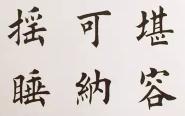 堪可搖
容納睡